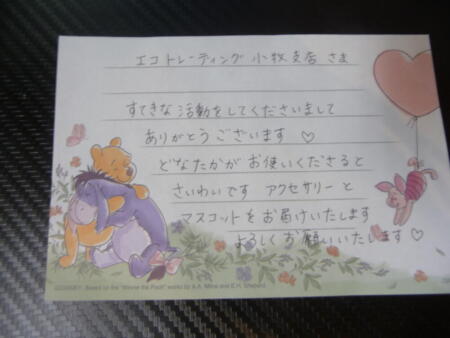 エコトレーディング 小牧支店 さま
すてきな活動をしてくださいまして
ありがとうございます♡
どなたかがお使いくださると
さいわいです アクセサリーと
マスコットをお届けいたします
よろしくお願いいたします♡
Based on the "Winnie the Pooh" works by A.A. Milne and E.H. Shepard.